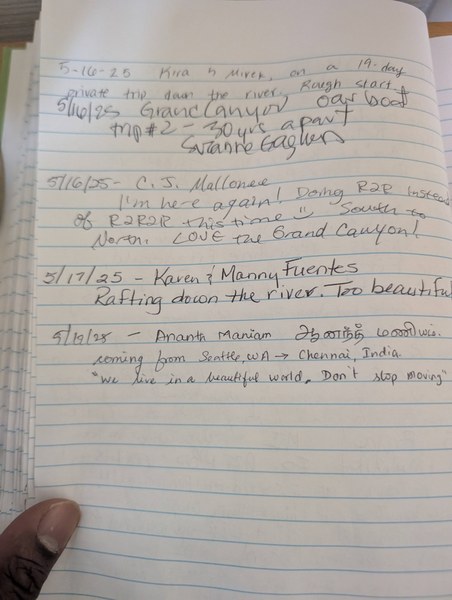 5-16-25 Kira & Mirek, on a 19-day
private trip down the river. Rough start
5/16/25 Grand Canyon oar boat
trip #2 - 30 yrs apart
Suzanne
5/16/25 - C. J. Mallonee
I'm here again! Doing R2R instead
of R2R2R this time South to
North. LOVE the Grand Canyon!
5/17/25 - Karen & Manny Fuentes
Rafting down the river. Too beautiful
5/19/25 - Ananth Maniam ஆனந்த் மணியம்.
coming from Seattle, WA → Chennai, India.
"We live in a beautiful world, Don't stop moving"